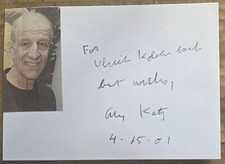 For
Ulrich
best wishes,
Alex Katz
4.15.01